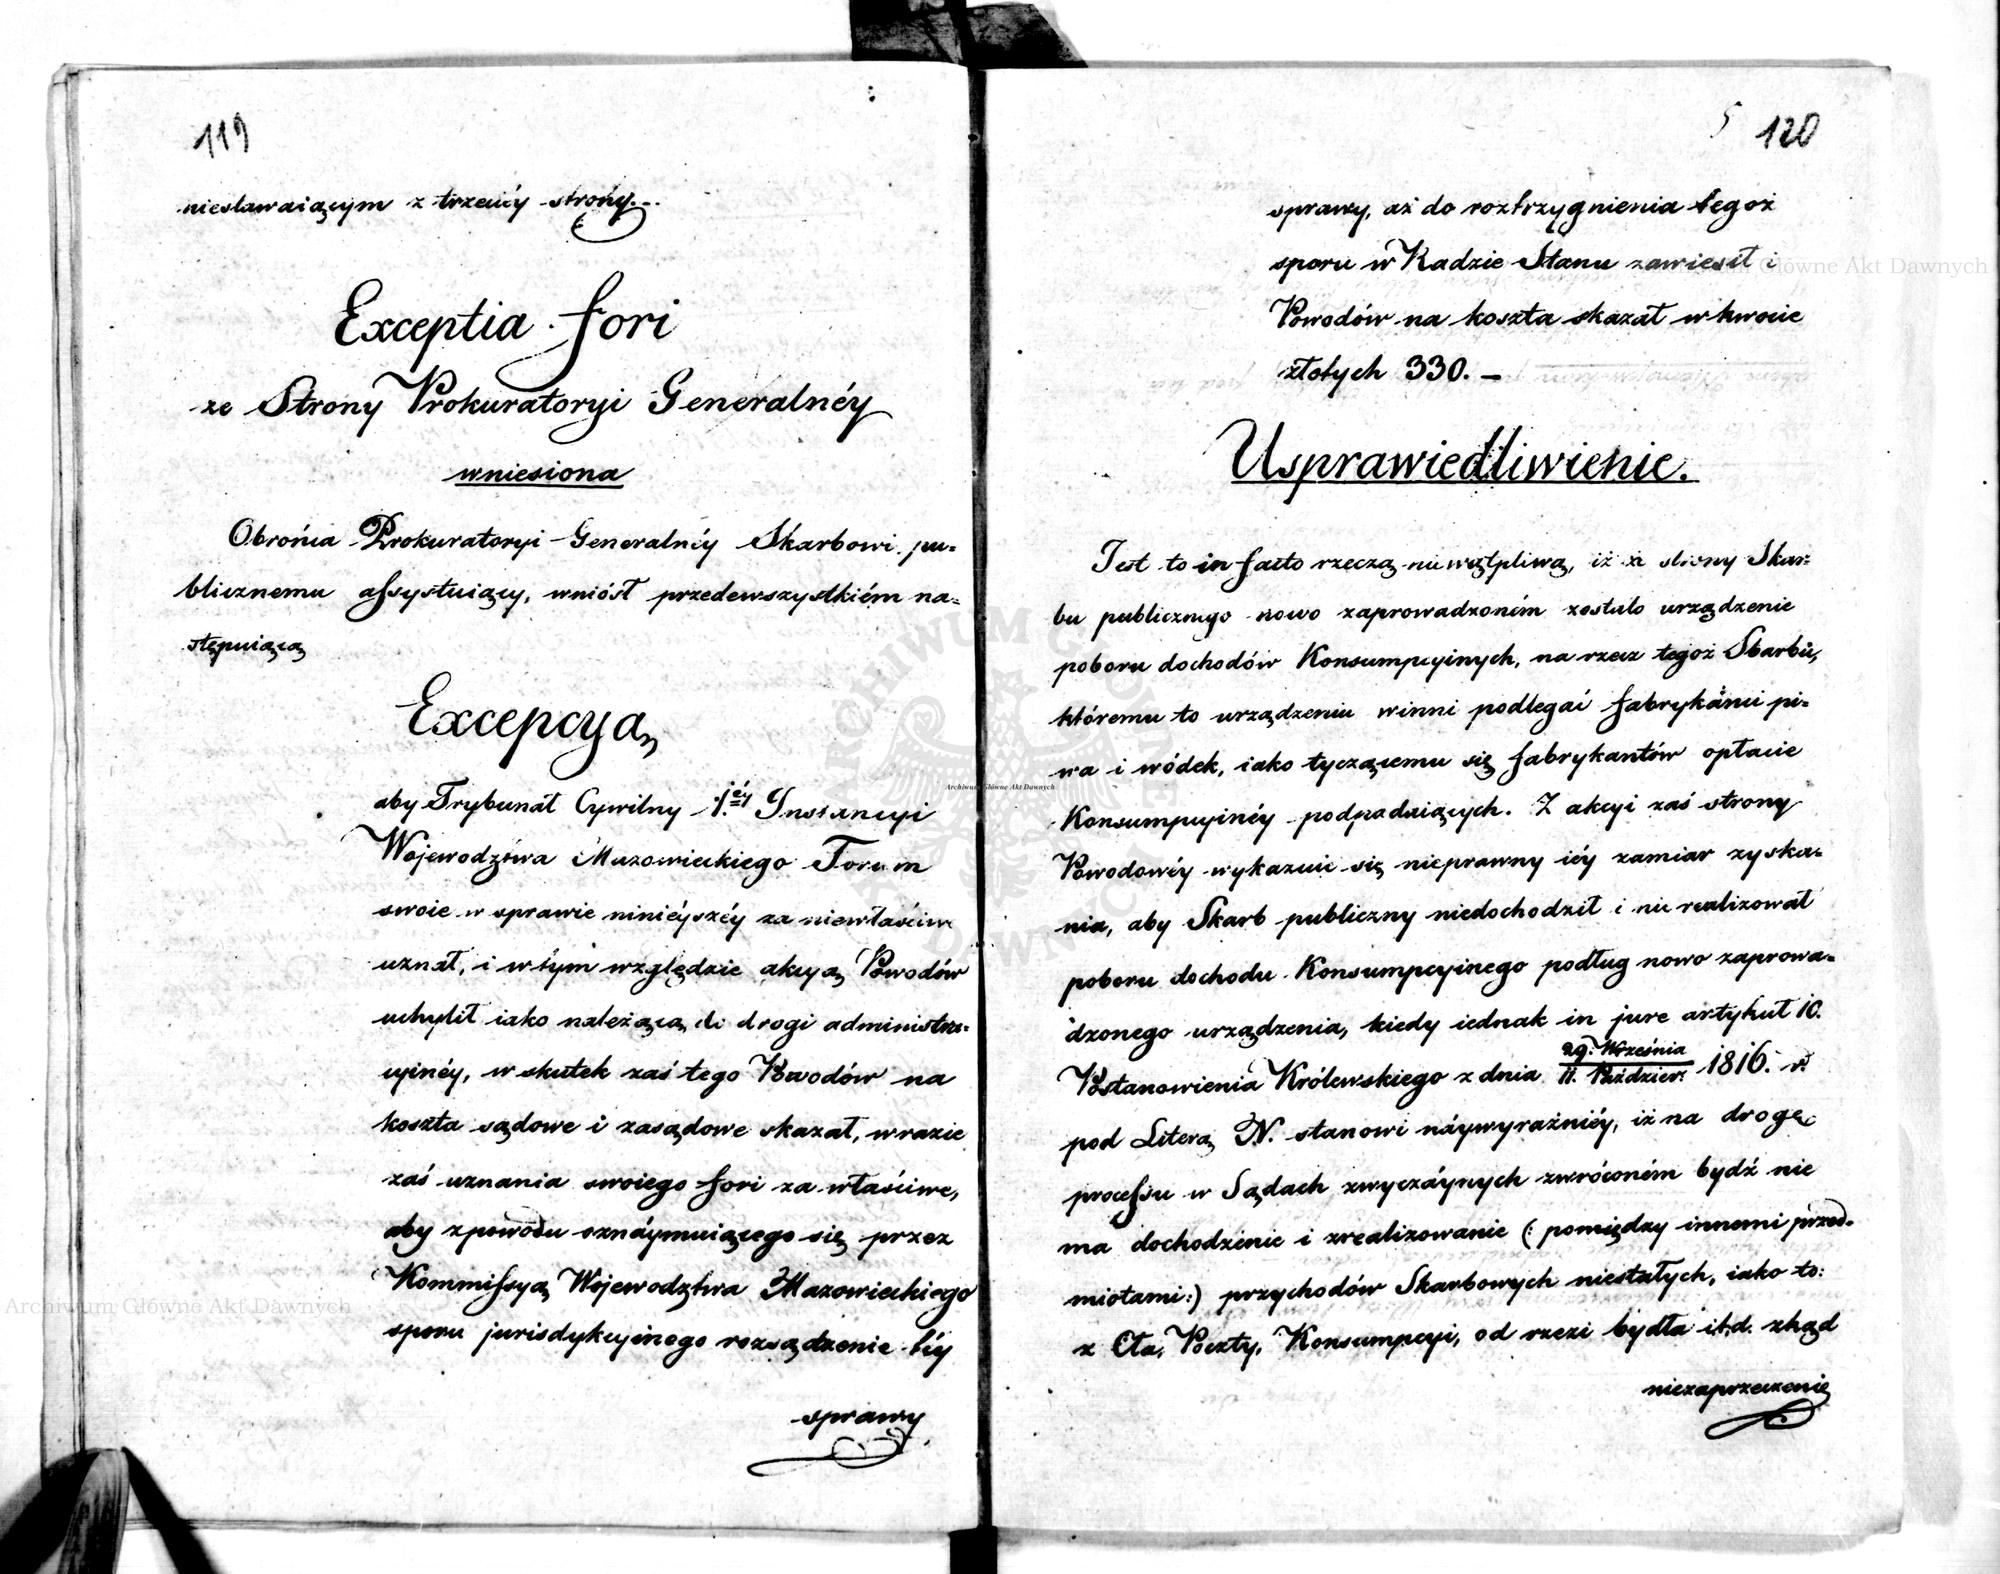 119
niestawaiącym z trzeciéy strony.
Exceptia fori
ze Strony Prokuratoryi Generalnéy
wniesiona
Obrońca Prokuratoryi Generalnéy Skarbowi pu=
blicznemu assystuiący, wniósł przedewszystkiém na=
stępuiącą
Excepcyą
aby Trybunał Cywilny 1.éy Instancyi
Wojewodztwa Mazowieckiego Forum
swoie w sprawie niniéyszéy za niewłaściwe
uznał, i w tym względzie akcyą Powodów
uchylił iako należącą do drogi administra=
cyinéy, w skutek zaś tego Powodów na
koszta sądowe i zasądowe skazał, w razie
zaś uznania swoiego fori za właściwe,
aby z powodu oznáymuiącego się przez
Kommissyą Wojewodztwa Mazowieckiego
sporu jurisdykcyinego rozsądzenie téy
sprawy
5 120
sprawy, aż do roztrzygnienia tegoż
sporu w Radzie Stanu zawiesił i
Powodów na koszta skazał w kwocie
złotych 330. –
Usprawiedliwienie.
Jest to in facto rzeczą niewątpliwą, iż ze strony Skar=
bu publicznego nowo zaprowadzoném zostało urządzenie
poboru dochodów Konsumpcyinych, na rzecz tegoż Skarbu,
któremu to urządzeniu winni podlegać fabrykánci pi=
wa i wódek, iako tyczącemu się fabrykantów opłacie
Konsumpcyinéy podpadaiących. Z akcyi zaś strony
Powodowéy wykazuie się nieprawny iéy zamiar zyska=
nia, aby Skarb publiczny niedochodził i nie realizował
poboru dochodu Konsumpcyinego podług nowo zaprowa=
dzonego urządzenia, kiedy iednak in jure artykuł 10.
Postanowienia Królewskiego z dnia 29. Września / 11. Paździer: 1816. r.
pod Literą N. stanowi náywyraźniéy, iż na drogę
processu w Sądach zwyczáynych zwróconém bydź nie
ma dochodzenie i zrealizowanie (: pomiędzy innemi przed=
miotami:) przychodów Skarbowych niestałych, iako to:
z Cła, Poczty, Konsumpcyi, od rzezi bydła i.t.d. zkąd
niezaprzeczenie
Archiwum Główne Akt Dawnych
Archiwum Główne Akt Dawnych
Archiwum Główne Akt Dawnych
ARCHIWUM GŁÓWNE AKT DAWNYCH